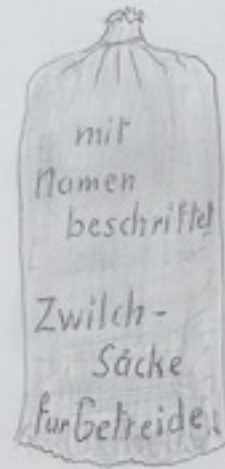 mit
Namen
beschriftet
Zwilch-
Säcke
für Getreide